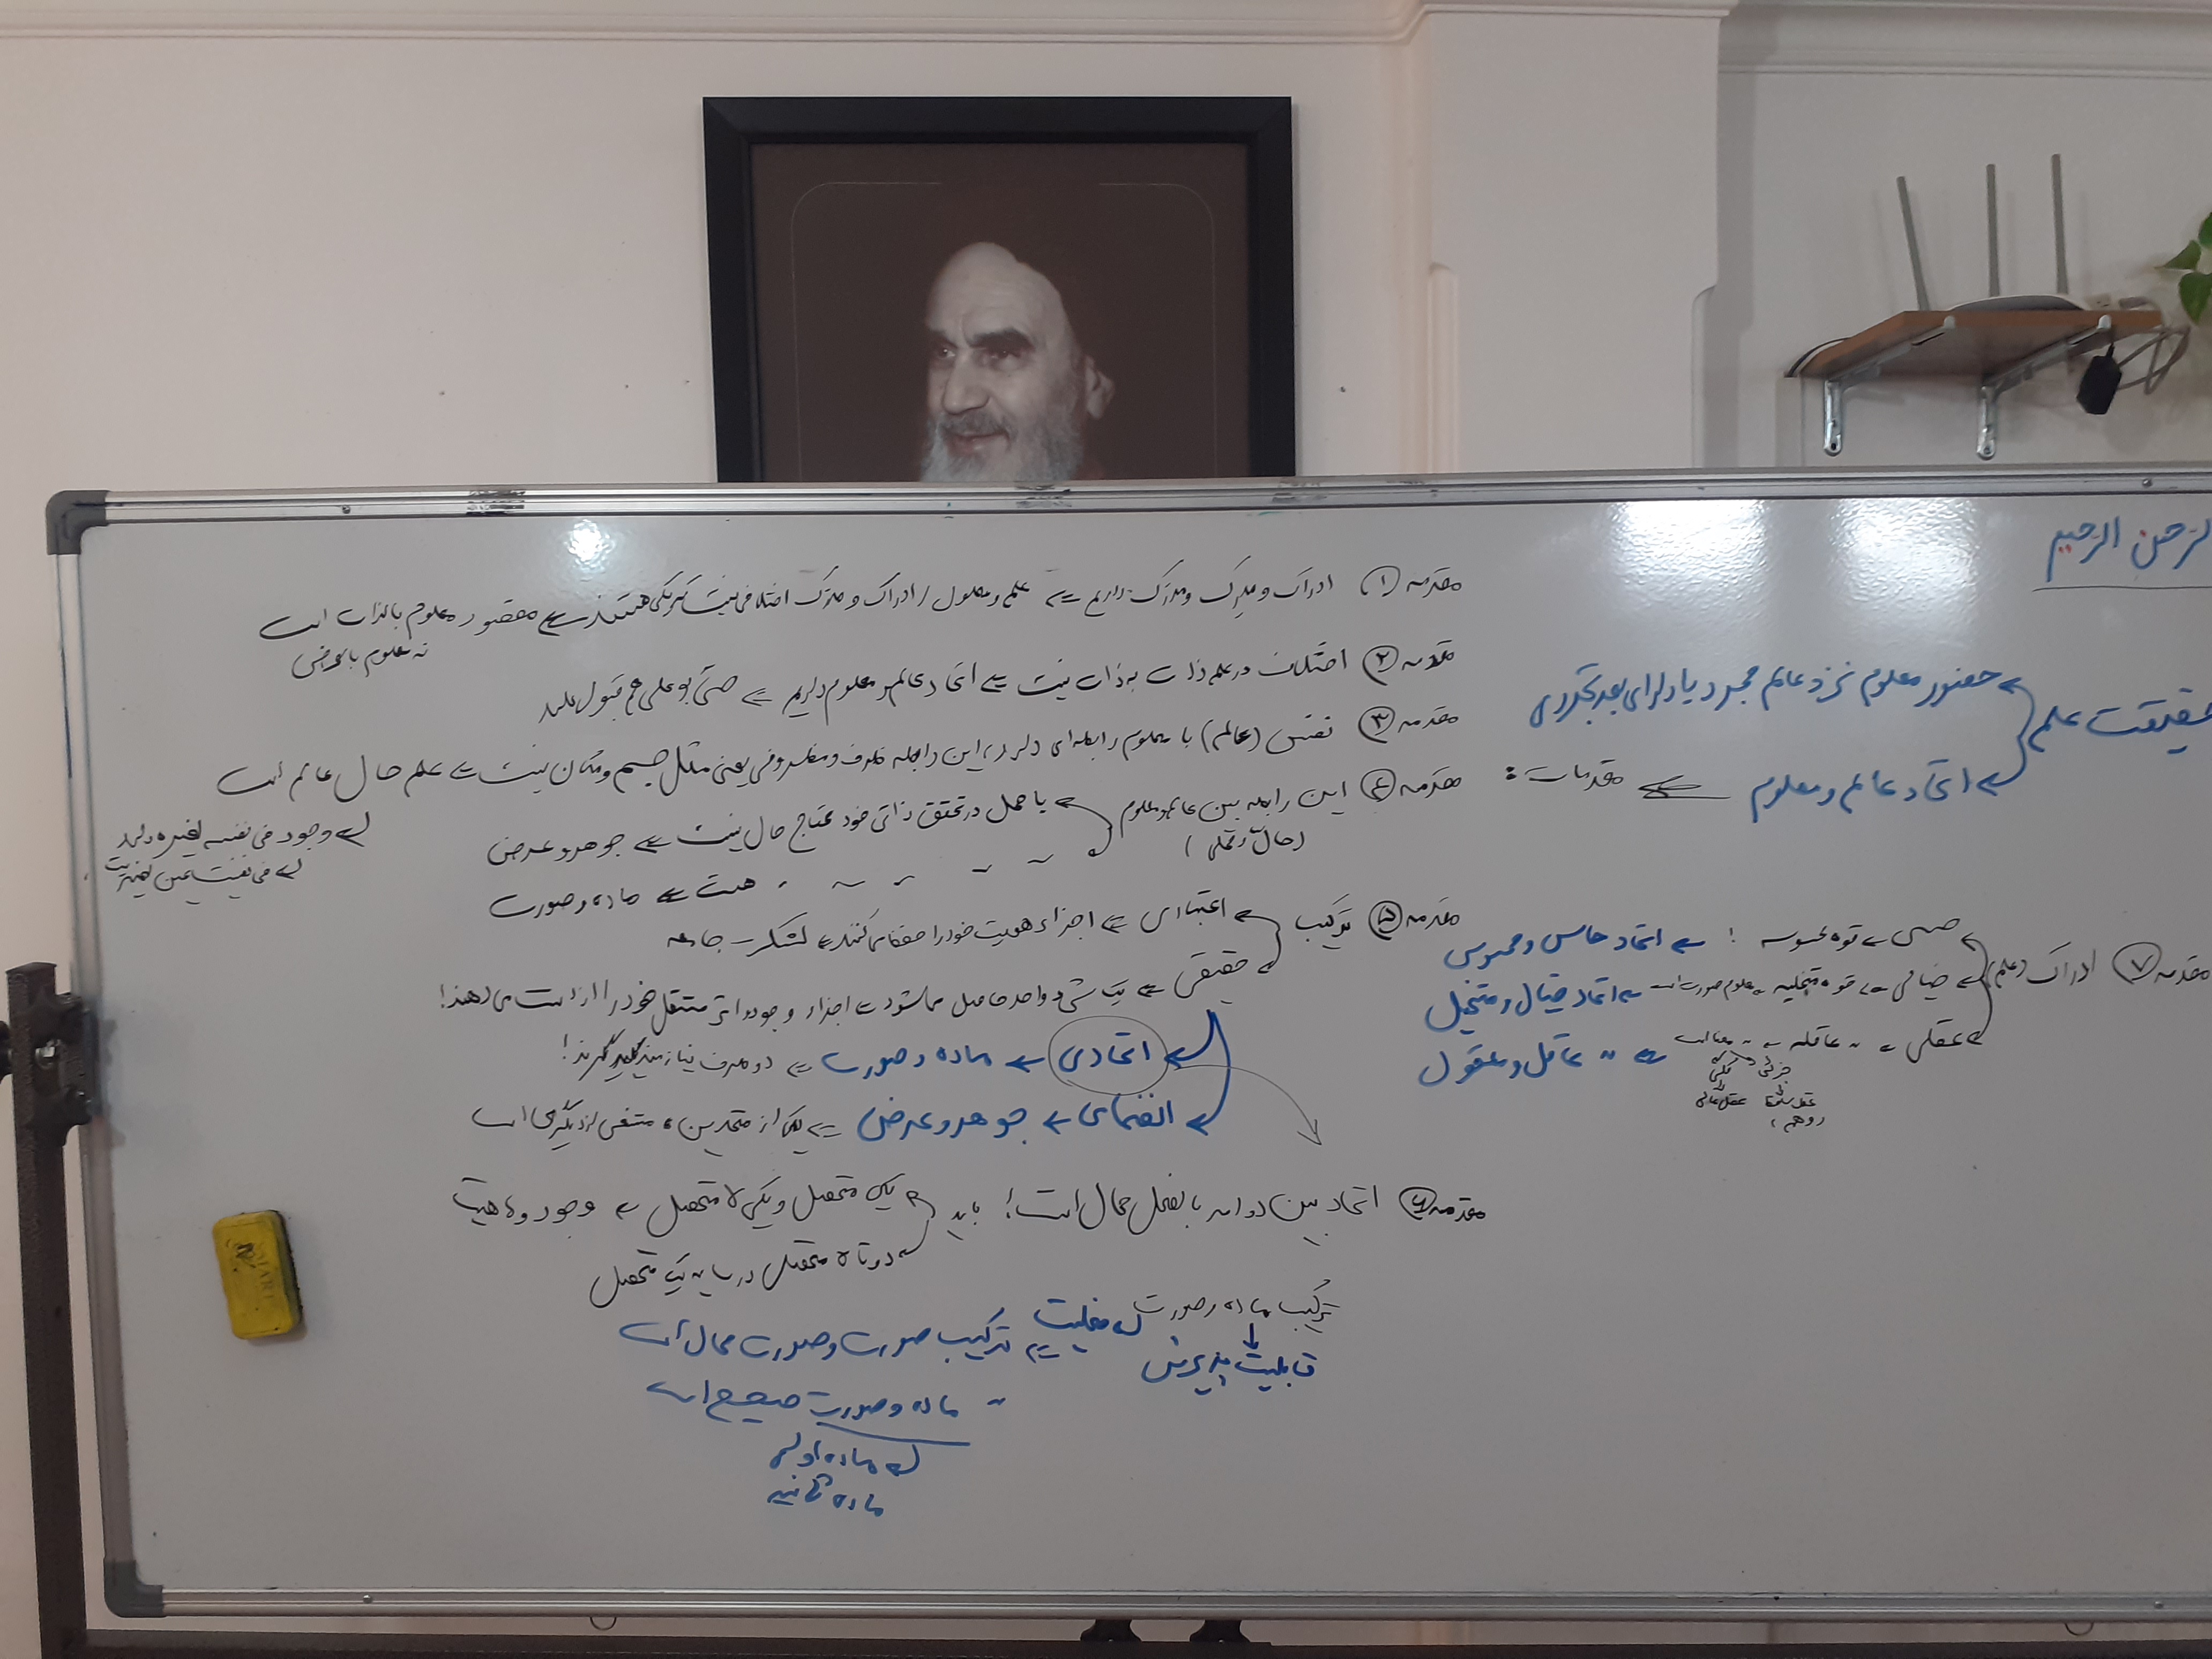 الرحمن الرحیم
حقیقت علم
حضور معلوم نزد عالم مجرد یا دارای بعد تجردی
اتحاد عالم و معلوم ⇐ مقدمات:
مقدمه ۷ ادراک (علم)
حسی ← قوه محسوسه ! ← اتحاد حاس و محسوس
خیالی ← قوه متخیله ← علوم صورت است ← اتحاد خیال و متخیل
عقلی ← " عاقله ← " معنا است ⇐ " عاقل و معقول
جزئی کلی
عقل عالی
(وهم)
مقدمه ۱ ادراک و مدرِک و مدرَک داریم ⇐ علم و معلول / ادراک و مدرَک اختلافی نیست یکی هستند ⇐ مقصود معلوم بالذات است
نه معلوم بالعرض
مقدمه ۲ اختلاف در علم ذات به ذات نیست ⇐ اتحاد عالم و معلوم داریم ⇐ حتی بوعلی هم قبول دارد
مقدمه ۳ نفس (عالم) با معلوم رابطه‌ای دارد، این رابطه ظرف و مظروفی یعنی مثل جسم و مکان نیست ⇐ علم حال عالم است
وجود فی نفسه لغیره دارد
مقدمه ۴ این رابطه بین عالم و معلوم
(حالّ و محل)
یا محل در تحقق ذاتی خود محتاج حال نیست ⇐ جوهر و عرض
" " " " " " هست ⇐ ماده و صورت
مقدمه ۵ ترکیب
اعتباری ⇐ اجزاء هویت خود را حفظ می‌کنند ⇐ لشکر - جامعه
حقیقی ⇐ یک شیء واحد حاصل می‌شود ⇐ اجزاء وجود و اثر مستقل خود را از دست می‌دهند!
اتحادی ← ماده و صورت ⇐ دو طرف نیازمند یکدیگرند!
انضمامی ← جوهر و عرض ⇐ یکی از متحدین، مستغنی از دیگری است
مقدمه ۶ اتحاد بین دو امر بالفعل محال است! باید
یکی متحصل و یکی لا متحصل ← وجود و ماهیت
دو تا لا متحصل در سایه یک متحصل
ترکیب ماده و صورت
قابلیت پذیرش
فعلیت ⇐ ترکیب صورت و صورت محال است
" ماده و صورت صحیح است
ماده اولی
ماده ثانیه